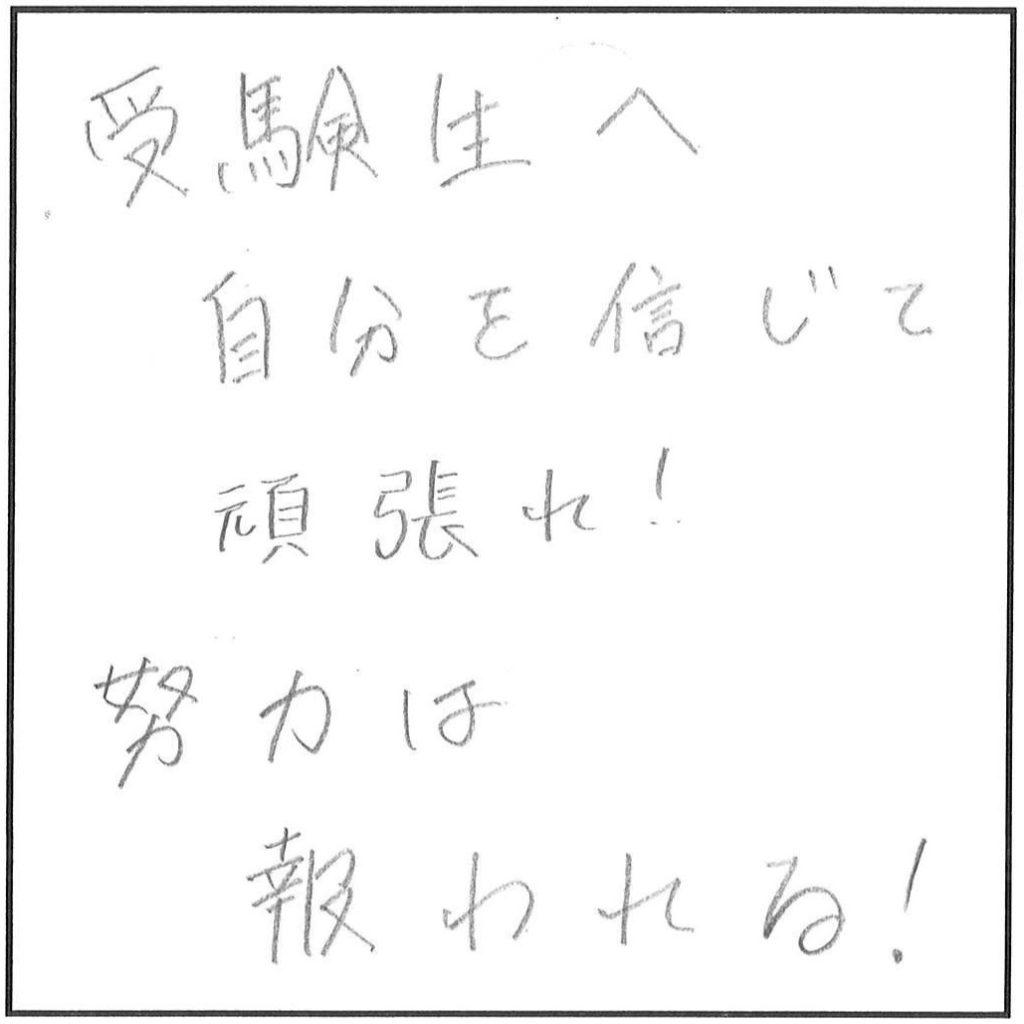 受験生へ
自分を信じて
頑張れ!
努力は
報われる!